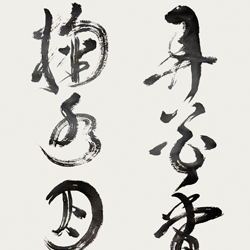 弄花香
掬水月